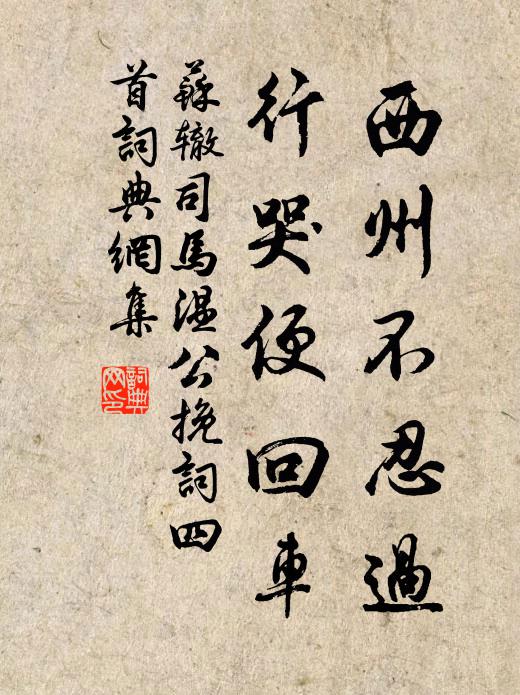 西州不忍過
行哭便回車
蘇轍司馬溫公挽詞四
首詞典網集
詞典
网印